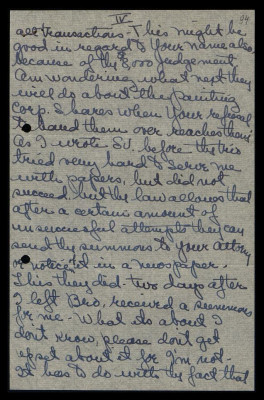 IV
94
all transactions. This might be
good in regard to your name also
because of the good judgement
Am wondering what next they
will do about the painting
Corp. Shares when your refusal
to hand them over reaches them
As I wrote S.V. before they
tried very hard to serve me
with papers, but did not
succeed, but the law allows that
after a certain amount of
unsuccessful attempts they can
send the summons to your attorney
or notice it in a newspaper.
This they did two days after
I left Bro. received a summons
for me - What do about I
don't know, please don't get
upset about it for I'm not -
It has to do with the fact that